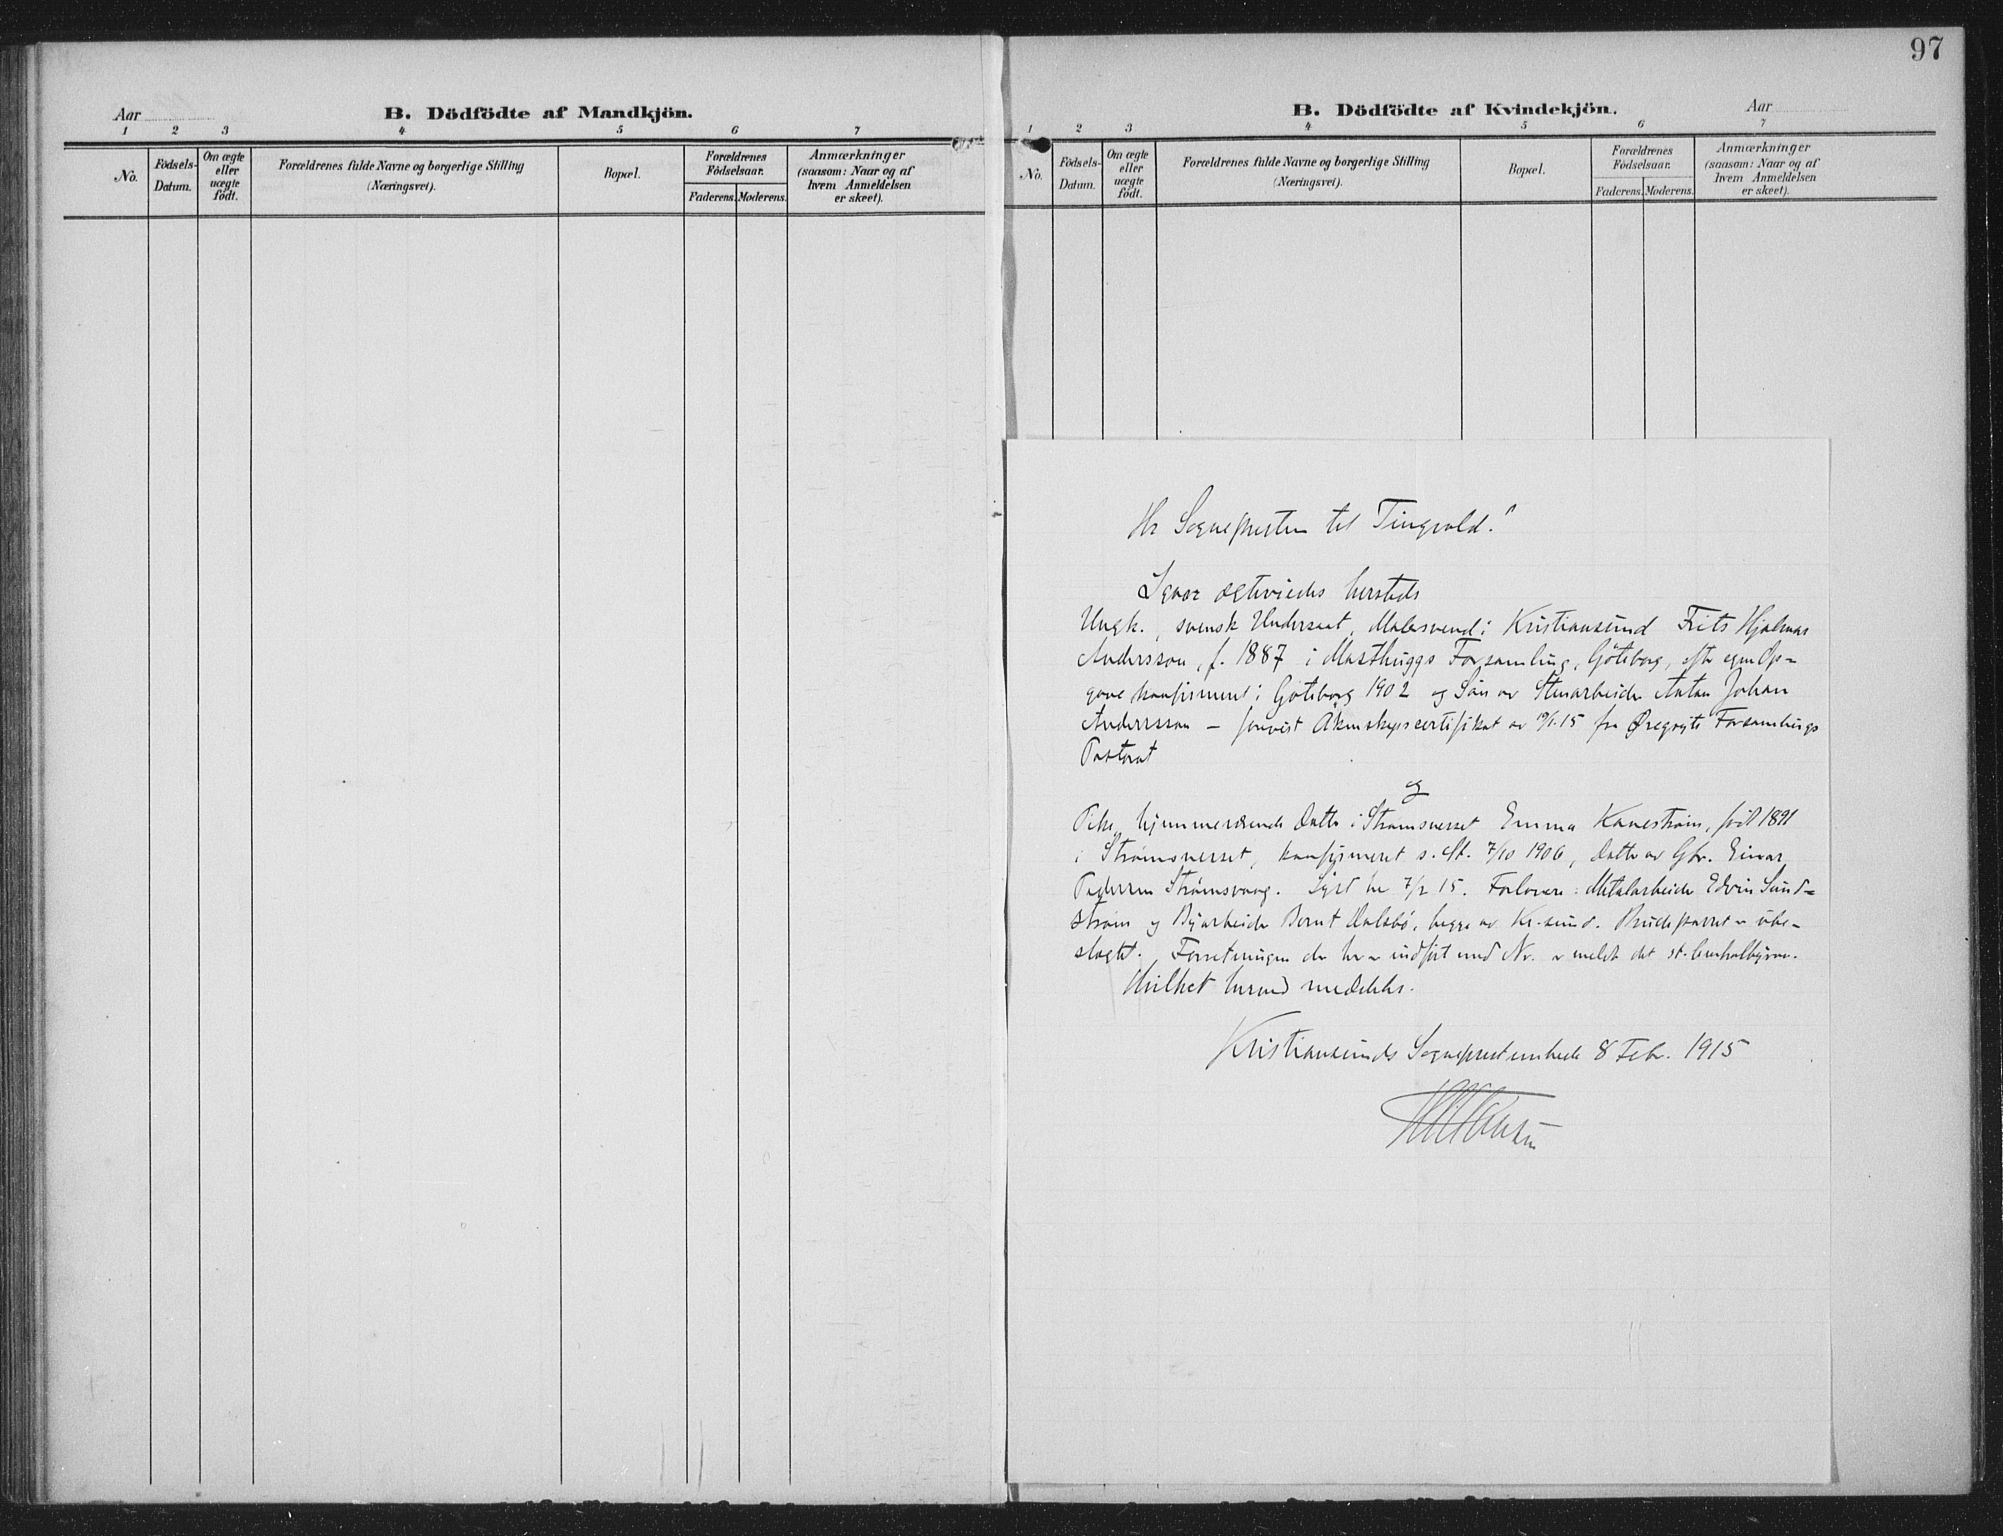 97
Aar
B. Dödfödte af Mandkjön.
1 2 3 4 5 6 7
No.
Födsels-
Datum.
Om ægte
eller
uægte
födt.
Forældrenes fulde Navne og borgerlige Stilling
(Næringsvei).
Bopæl.
Forældrenes
Födselsaar.
Faderens. Moderens.
Anmærkninger
(saasom: Naar og af
hvem Anmeldelsen
er skeet).
B. Dödfödte af Kvindekjön.
Aar
1 2 3 4 5 6 7
No.
Födsels-
Datum.
Om ægte
eller
uægte
födt.
Forældrenes fulde Navne og borgerlige Stilling
(Næringsvei).
Bopæl.
Forældrenes
Födselsaar.
Faderens. Moderens.
Anmærkninger
(saasom: Naar og af
hvem Anmeldelsen
er skeet).
Hr Sognepresten til Tingvold!
Igaar ægteviedes hersteds
Ungk., svensk Undersaat, Malersvend i Kristiansund Frits Hjalmar
Andersson, f. 1887 i Masthuggs Forsamling, Göteborg, efter egen Op-
gave konfirmeret i Göteborg 1902 og Søn av Stenarbeider Anton Johan
Andersson – forevist Äkenskapscertifikat av 19/1.15 fra Øregryte Forsamlings
Pastorat
og
Pike, hjemmeværende Datter i Strømsneset Emma Kanestrøm, født 1891
i Strømsneset, konfirmeret s. st. 7/10 1906, Datter av Gbr. Einar
Pedersen Strømsvaag. Lyst her 7/2 15. Forlovere: Metalarbeider Edvin Sund-
strøm og Byarbeider Bernt Dalsbø, begge av Kr.sund. Brudeparret er ube-
slegtet. Forretningen der her er indført med Nr. er meldt det st. Centralbyraa.
Hvilket herved meddeles.
Kristiansunds Sogneprestembede 8 Febr. 1915